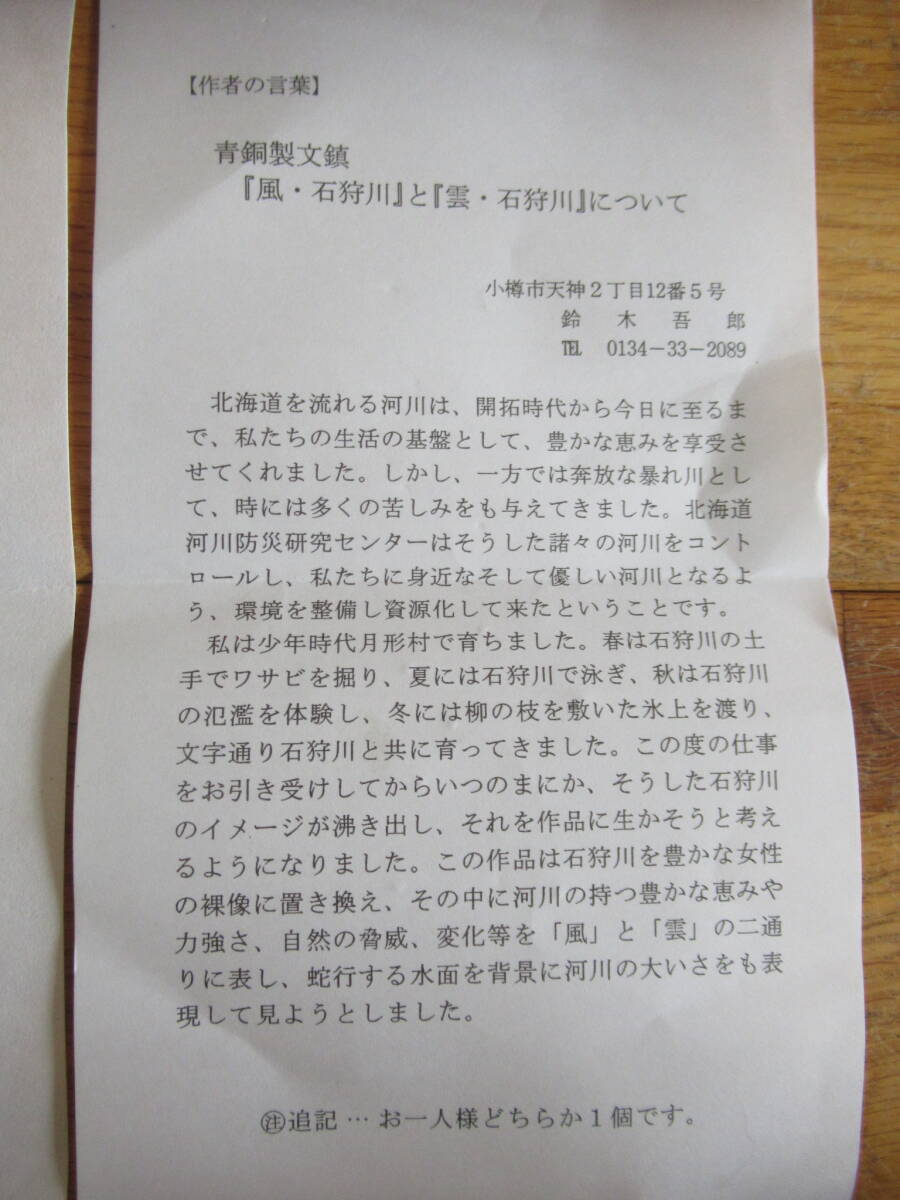 【作者の言葉】
青銅製文鎮
『風・石狩川』と『雲・石狩川』について
小樽市天神２丁目12番５号
鈴木吾郎
℡ 0134－33－2089
北海道を流れる河川は、開拓時代から今日に至るま
で、私たちの生活の基盤として、豊かな恵みを享受さ
せてくれました。しかし、一方では奔放な暴れ川とし
て、時には多くの苦しみをも与えてきました。北海道
河川防災研究センターはそうした諸々の河川をコント
ロールし、私たちに身近なそして優しい河川となるよ
う、環境を整備し資源化して来たということです。
私は少年時代月形村で育ちました。春は石狩川の土
手でワサビを掘り、夏には石狩川で泳ぎ、秋は石狩川
の氾濫を体験し、冬には柳の枝を敷いた氷上を渡り、
文字通り石狩川と共に育ってきました。この度の仕事
をお引き受けしてからいつのまにか、そうした石狩川
のイメージが沸き出し、それを作品に生かそうと考え
るようになりました。この作品は石狩川を豊かな女性
の裸像に置き換え、その中に河川の持つ豊かな恵みや
力強さ、自然の脅威、変化等を「風」と「雲」の二通
りに表し、蛇行する水面を背景に河川の大いさをも表
現して見ようとしました。
㊟追記…お一人様どちらか１個です。